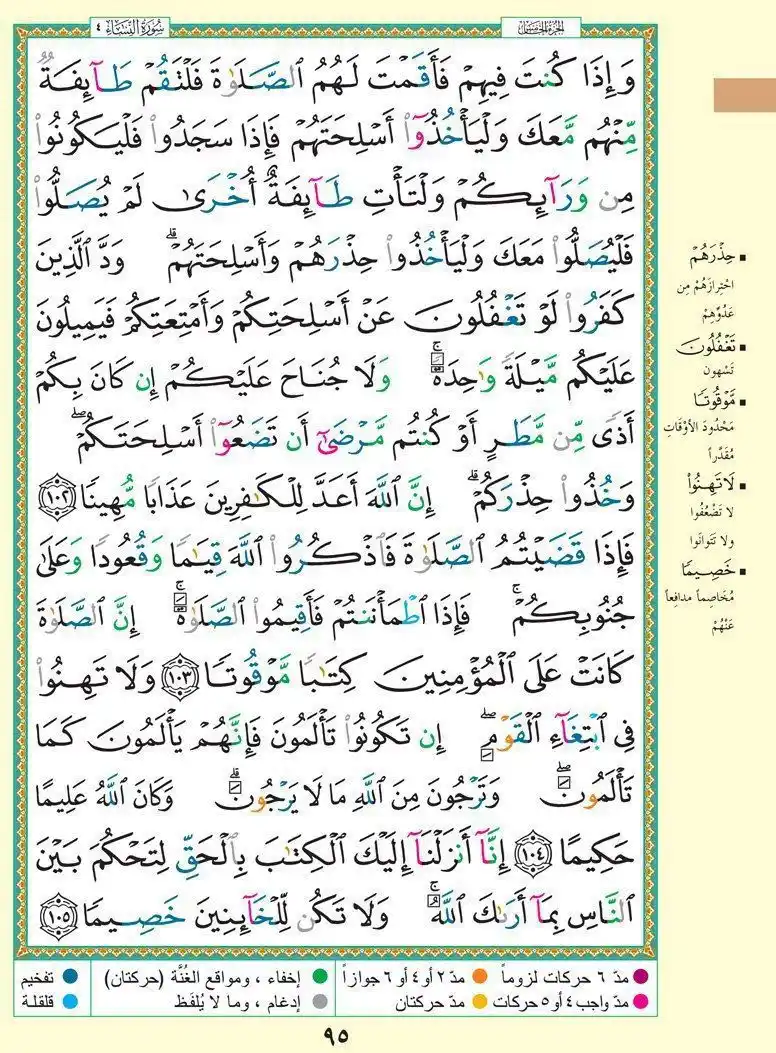 سُورَةُ النِّسَاءِ ٤
الجزء الخامس
وَإِذَا كُنتَ فِيهِمْ فَأَقَمْتَ لَهُمُ ٱلصَّلَوٰةَ فَلْتَقُمْ طَآئِفَةٌ
مِّنْهُم مَّعَكَ وَلْيَأْخُذُوٓا۟ أَسْلِحَتَهُمْ فَإِذَا سَجَدُوا۟ فَلْيَكُونُوا۟
مِن وَرَآئِكُمْ وَلْتَأْتِ طَآئِفَةٌ أُخْرَىٰ لَمْ يُصَلُّوا۟
فَلْيُصَلُّوا۟ مَعَكَ وَلْيَأْخُذُوا۟ حِذْرَهُمْ وَأَسْلِحَتَهُمْ ۗ وَدَّ ٱلَّذِينَ
كَفَرُوا۟ لَوْ تَغْفُلُونَ عَنْ أَسْلِحَتِكُمْ وَأَمْتِعَتِكُمْ فَيَمِيلُونَ
عَلَيْكُم مَّيْلَةً وَٰحِدَةً ۚ وَلَا جُنَاحَ عَلَيْكُمْ إِن كَانَ بِكُمْ
أَذًى مِّن مَّطَرٍ أَوْ كُنتُم مَّرْضَىٰٓ أَن تَضَعُوٓا۟ أَسْلِحَتَكُمْ ۖ
وَخُذُوا۟ حِذْرَكُمْ ۗ إِنَّ ٱللَّهَ أَعَدَّ لِلْكَٰفِرِينَ عَذَابًا مُّهِينًا ١٠٢
فَإِذَا قَضَيْتُمُ ٱلصَّلَوٰةَ فَٱذْكُرُوا۟ ٱللَّهَ قِيَٰمًا وَقُعُودًا وَعَلَىٰ
جُنُوبِكُمْ ۚ فَإِذَا ٱطْمَأْنَنتُمْ فَأَقِيمُوا۟ ٱلصَّلَوٰةَ ۚ إِنَّ ٱلصَّلَوٰةَ
كَانَتْ عَلَى ٱلْمُؤْمِنِينَ كِتَٰبًا مَّوْقُوتًا ١٠٣ وَلَا تَهِنُوا۟
فِى ٱبْتِغَآءِ ٱلْقَوْمِ ۖ إِن تَكُونُوا۟ تَأْلَمُونَ فَإِنَّهُمْ يَأْلَمُونَ كَمَا
تَأْلَمُونَ ۖ وَتَرْجُونَ مِنَ ٱللَّهِ مَا لَا يَرْجُونَ ۗ وَكَانَ ٱللَّهُ عَلِيمًا
حَكِيمًا ١٠٤ إِنَّآ أَنزَلْنَآ إِلَيْكَ ٱلْكِتَٰبَ بِٱلْحَقِّ لِتَحْكُمَ بَيْنَ
ٱلنَّاسِ بِمَآ أَرَىٰكَ ٱللَّهُ ۚ وَلَا تَكُن لِّلْخَآئِنِينَ خَصِيمًا ١٠٥
▪ حِذْرَهُمْ
احْتِرازَهُمْ مِن
عَدُوِّهِمْ
▪ تَغْفُلُونَ
تَسْهون
▪ مَّوْقُوتًا
مَحْدُودَ الأوْقَاتِ
مُقَدَّراً
▪ لَا تَهِنُوا۟
لا تَضْعُفُوا
ولا تَتَوانَوا
▪ خَصِيمًا
مُخَاصِماً مدافِعاً
عَنْهُمْ
مدّ ٦ حركات لزوماً
مدّ ٢ أو ٤ أو ٦ جوازاً
إخفاء ، ومواقع الغُنَّة (حركتان)
تفخيم
مدّ واجب ٤ أو ٥ حركات
مدّ حركتان
إدغام ، وما لا يُلفَظ
قلقلة
٩٥